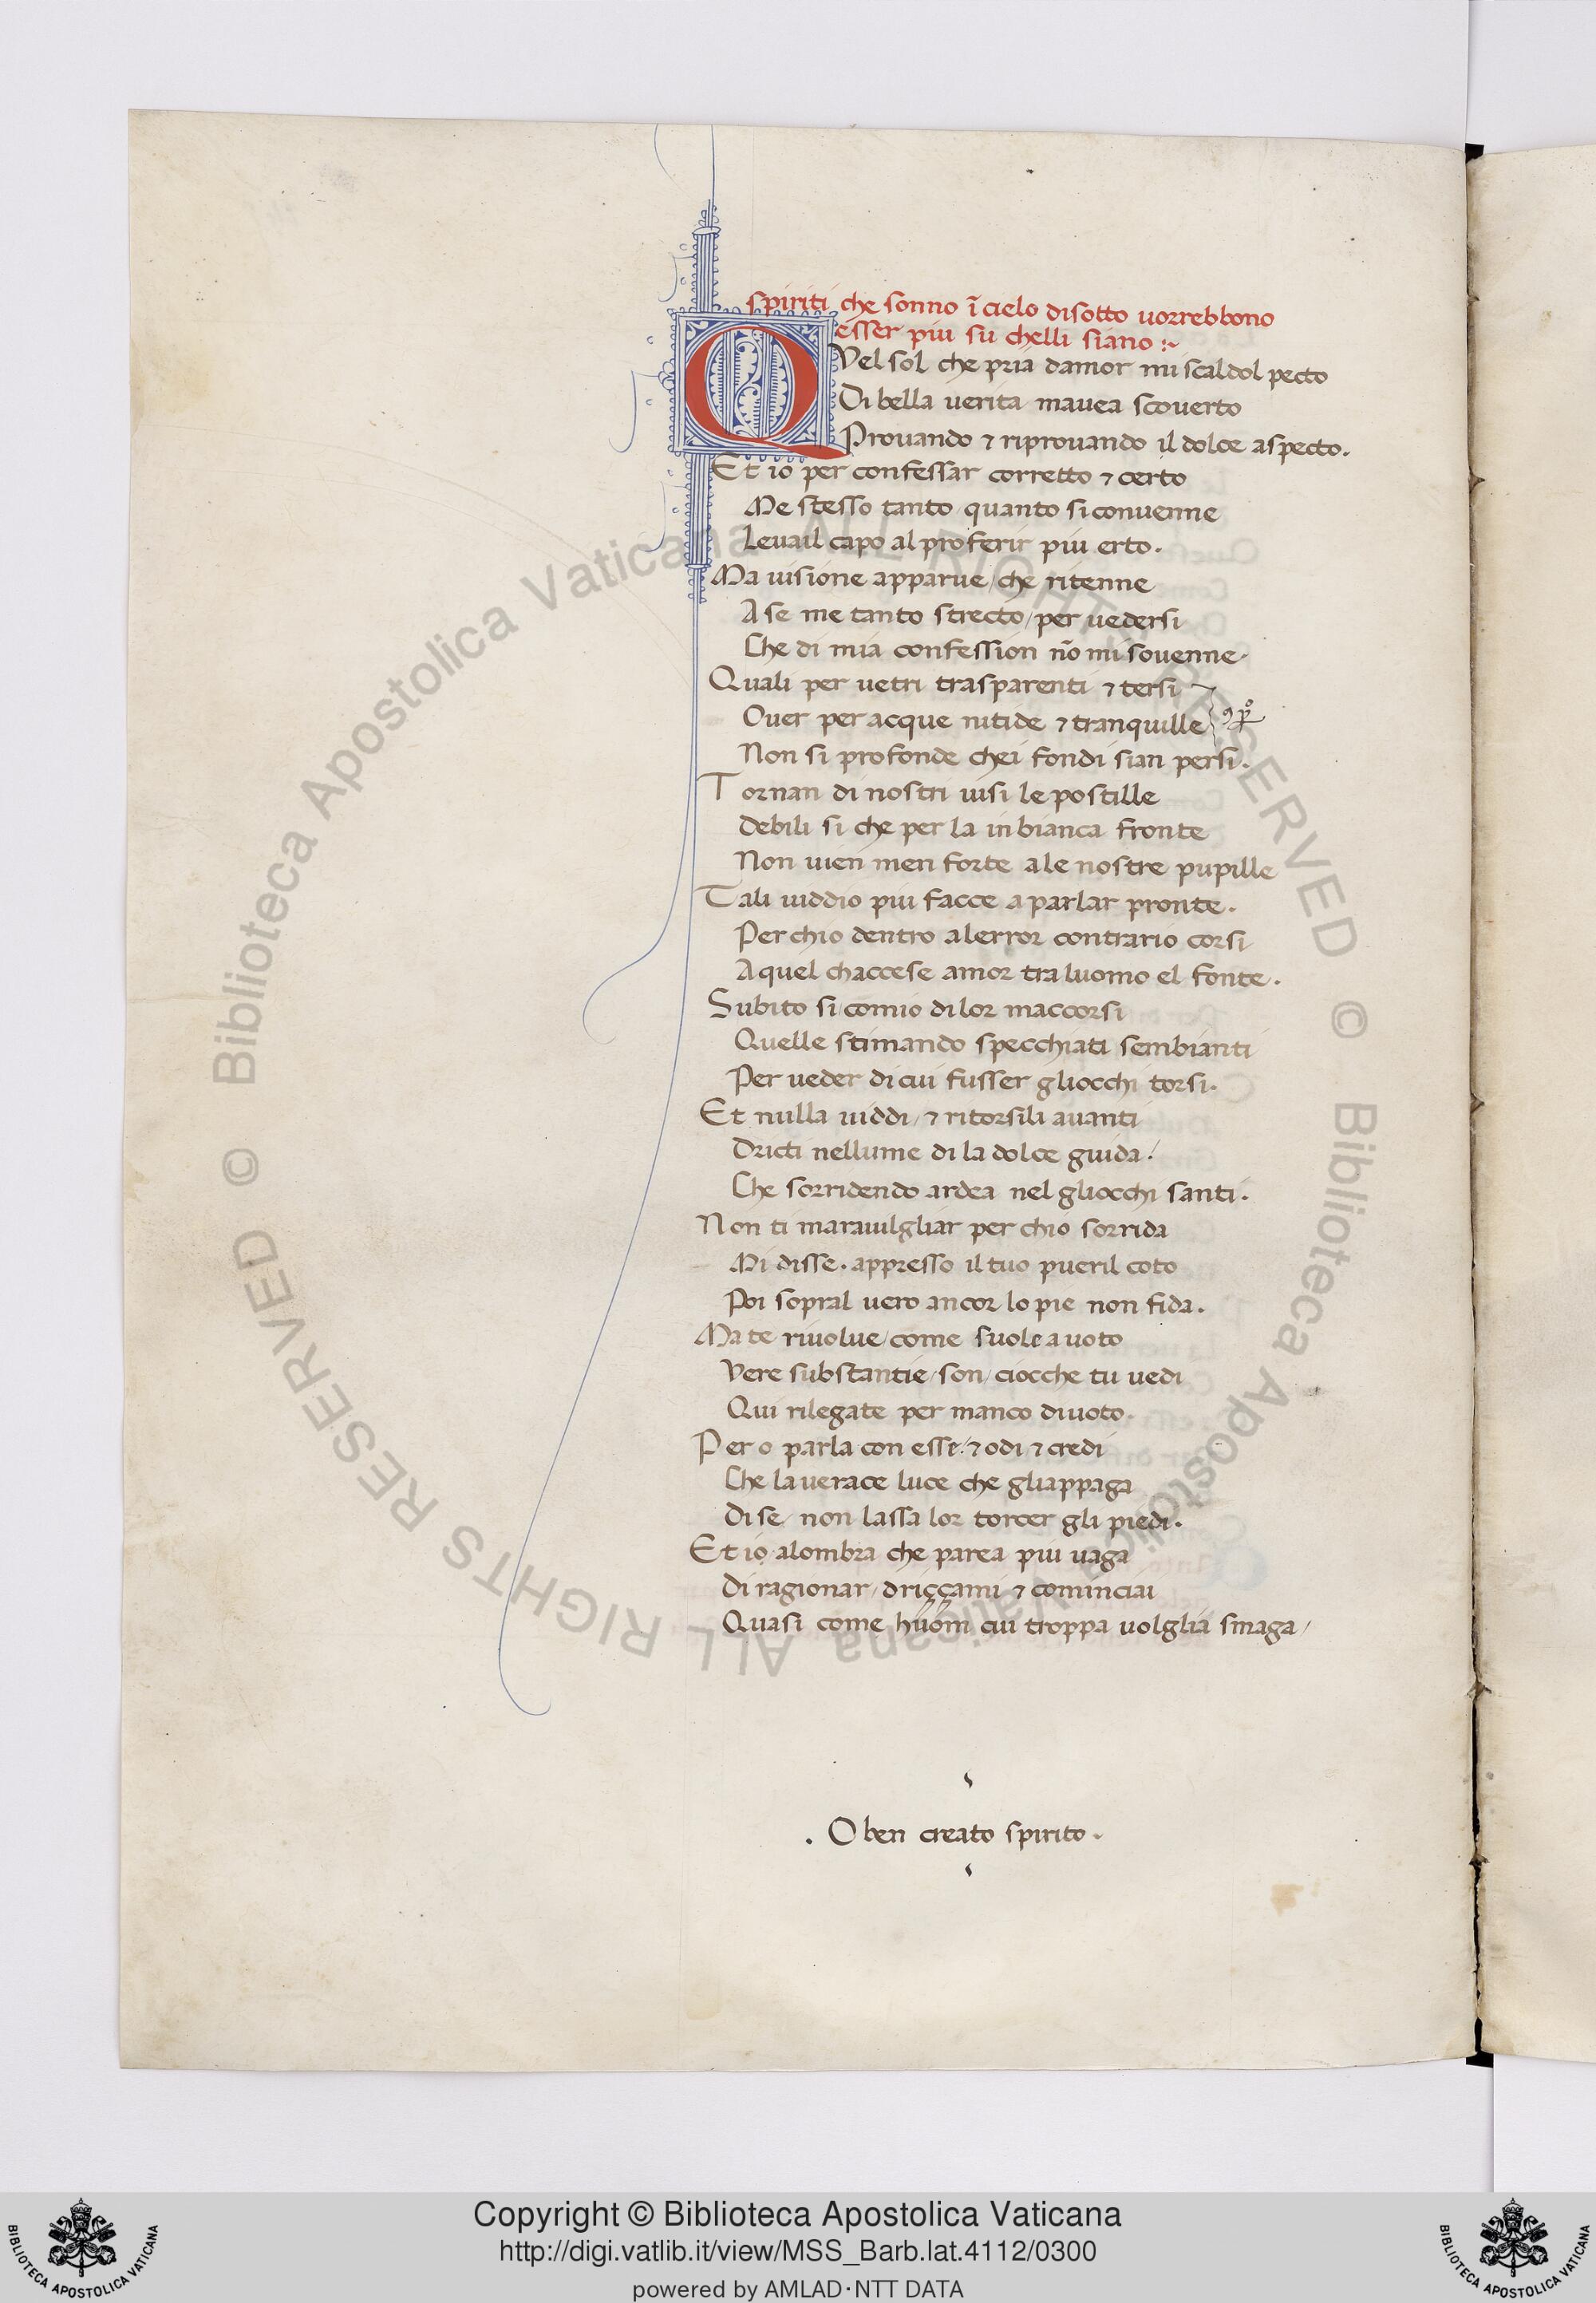 spiriti che sonno ī cielo disotto uorrebbono
esser piu su chelli siano :~
QVel sol che pria damor mi scaldol pecto
Di bella uerita mauea scouerto
Prouando ⁊ riprouando il dolce aspecto.
Et io per confessar corretto ⁊ certo
Me stesso tanto quanto si conuenne
Leuail capo al proferir piu erto.
Ma uisione apparue / che ritenne
A se me tanto strecto / per uedersi
Che di mia confession nō mi souenne.
Quali per uetri trasparenti ⁊ tersi
Ouer per acque nitide ⁊ tranquille
Non si profonde chei fondi sian persi.
Tornan di nostri uisi le postille
debili si che per la in bianca fronte
Non uien men forte a le nostre pupille
Tali uiddio piu facce a parlar pronte.
Perchio dentro alerror contrario corsi
A quel chaccese amor tra luomo el fonte.
Subito si comio di lor maccorsi
Quelle stimando specchiati sembianti
Per ueder di cui fusser gliocchi torsi.
Et nulla uiddi / ⁊ ritorsili auanti
Dricti nellume di la dolce guida.
Che sorridendo ardea nel gliocchi santi.
Non ti marauilgliar perchio sorrida
Mi disse. appresso il tuo pueril coto
Poi sopral uero ancor lo pie non fida.
Ma te riuolue / come suole a uoto
Vere substantie / son / ciocche tu uedi
Qui rilegate per manco diuoto.
Pero parla con esse / ⁊ odi ⁊ credi
Che la uerace luce che gliappaga
Di se / non lassa lor torcer gli piedi.
Et io alombra che parea piu uaga
Di ragionar / driççami ⁊ cominciai
Quasi come huom cui troppa uolglia smaga /
. O ben creato spirito .
Copyright © Biblioteca Apostolica Vaticana
http://digi.vatlib.it/view/MSS_Barb.lat.4112/0300
powered by AMLAD·NTT DATA
BIBLIOTECA APOSTOLICA VATICANA
BIBLIOTECA APOSTOLICA VATICANA
© Biblioteca Apostolica Vaticana ALL RIGHTS RESERVED
© Biblioteca Apostolica Vaticana ALL RIGHTS RESERVED